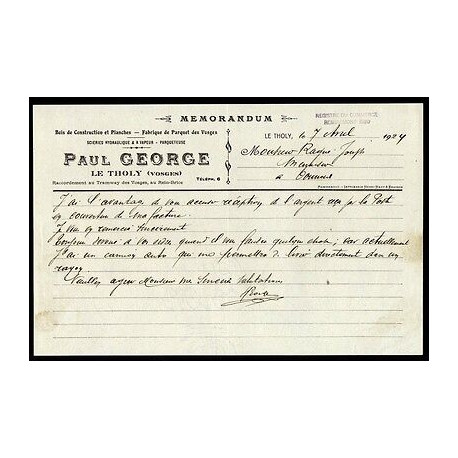 MEMORANDUM
REGISTRE DU COMMERCE
Bois de Construction et Planches — Fabrique de Parquet des Vosges
SCIERIES HYDRAULIQUE & A VAPEUR - PARQUETEUSE
PAUL GEORGE
LE THOLY (VOSGES)
Raccordement au Tramway des Vosges, au Rain-Brice
TÉLÉPH. 6
LE THOLY, le 7 Avril 1924
Monsieur Joseph
Menuisier
à
J'ai l'avantage de vous accuser réception de l'argent par la Poste
en couverture de ma facture.
Je vous en remercie sincèrement
Toujours à vos ordres quand il vous faudra quelque chose; car actuellement
J'ai un camion auto qui me permettra de livrer directement dans un
rayon
Veuillez agréer Monsieur mes Sincères Salutations